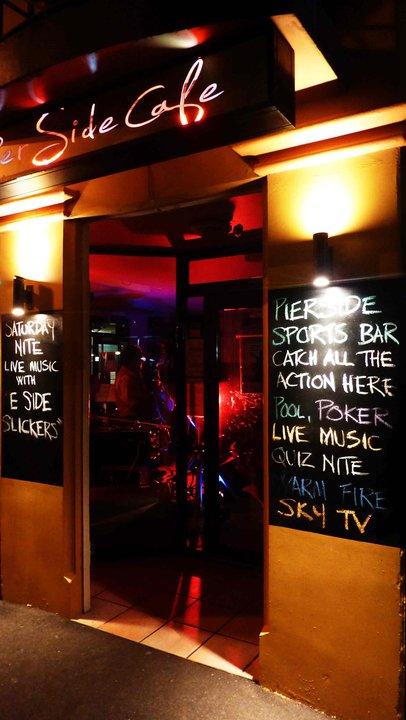 er Side Cafe
SATURDAY
NITE
LIVE MUSIC
WITH
E SIDE
SLICKERS"
PIERSIDE
SPORTS BAR
CATCH ALL THE
ACTION HERE
POOL, POKER
LIVE MUSIC
QUIZ NITE
WARM FIRE
SKY TV